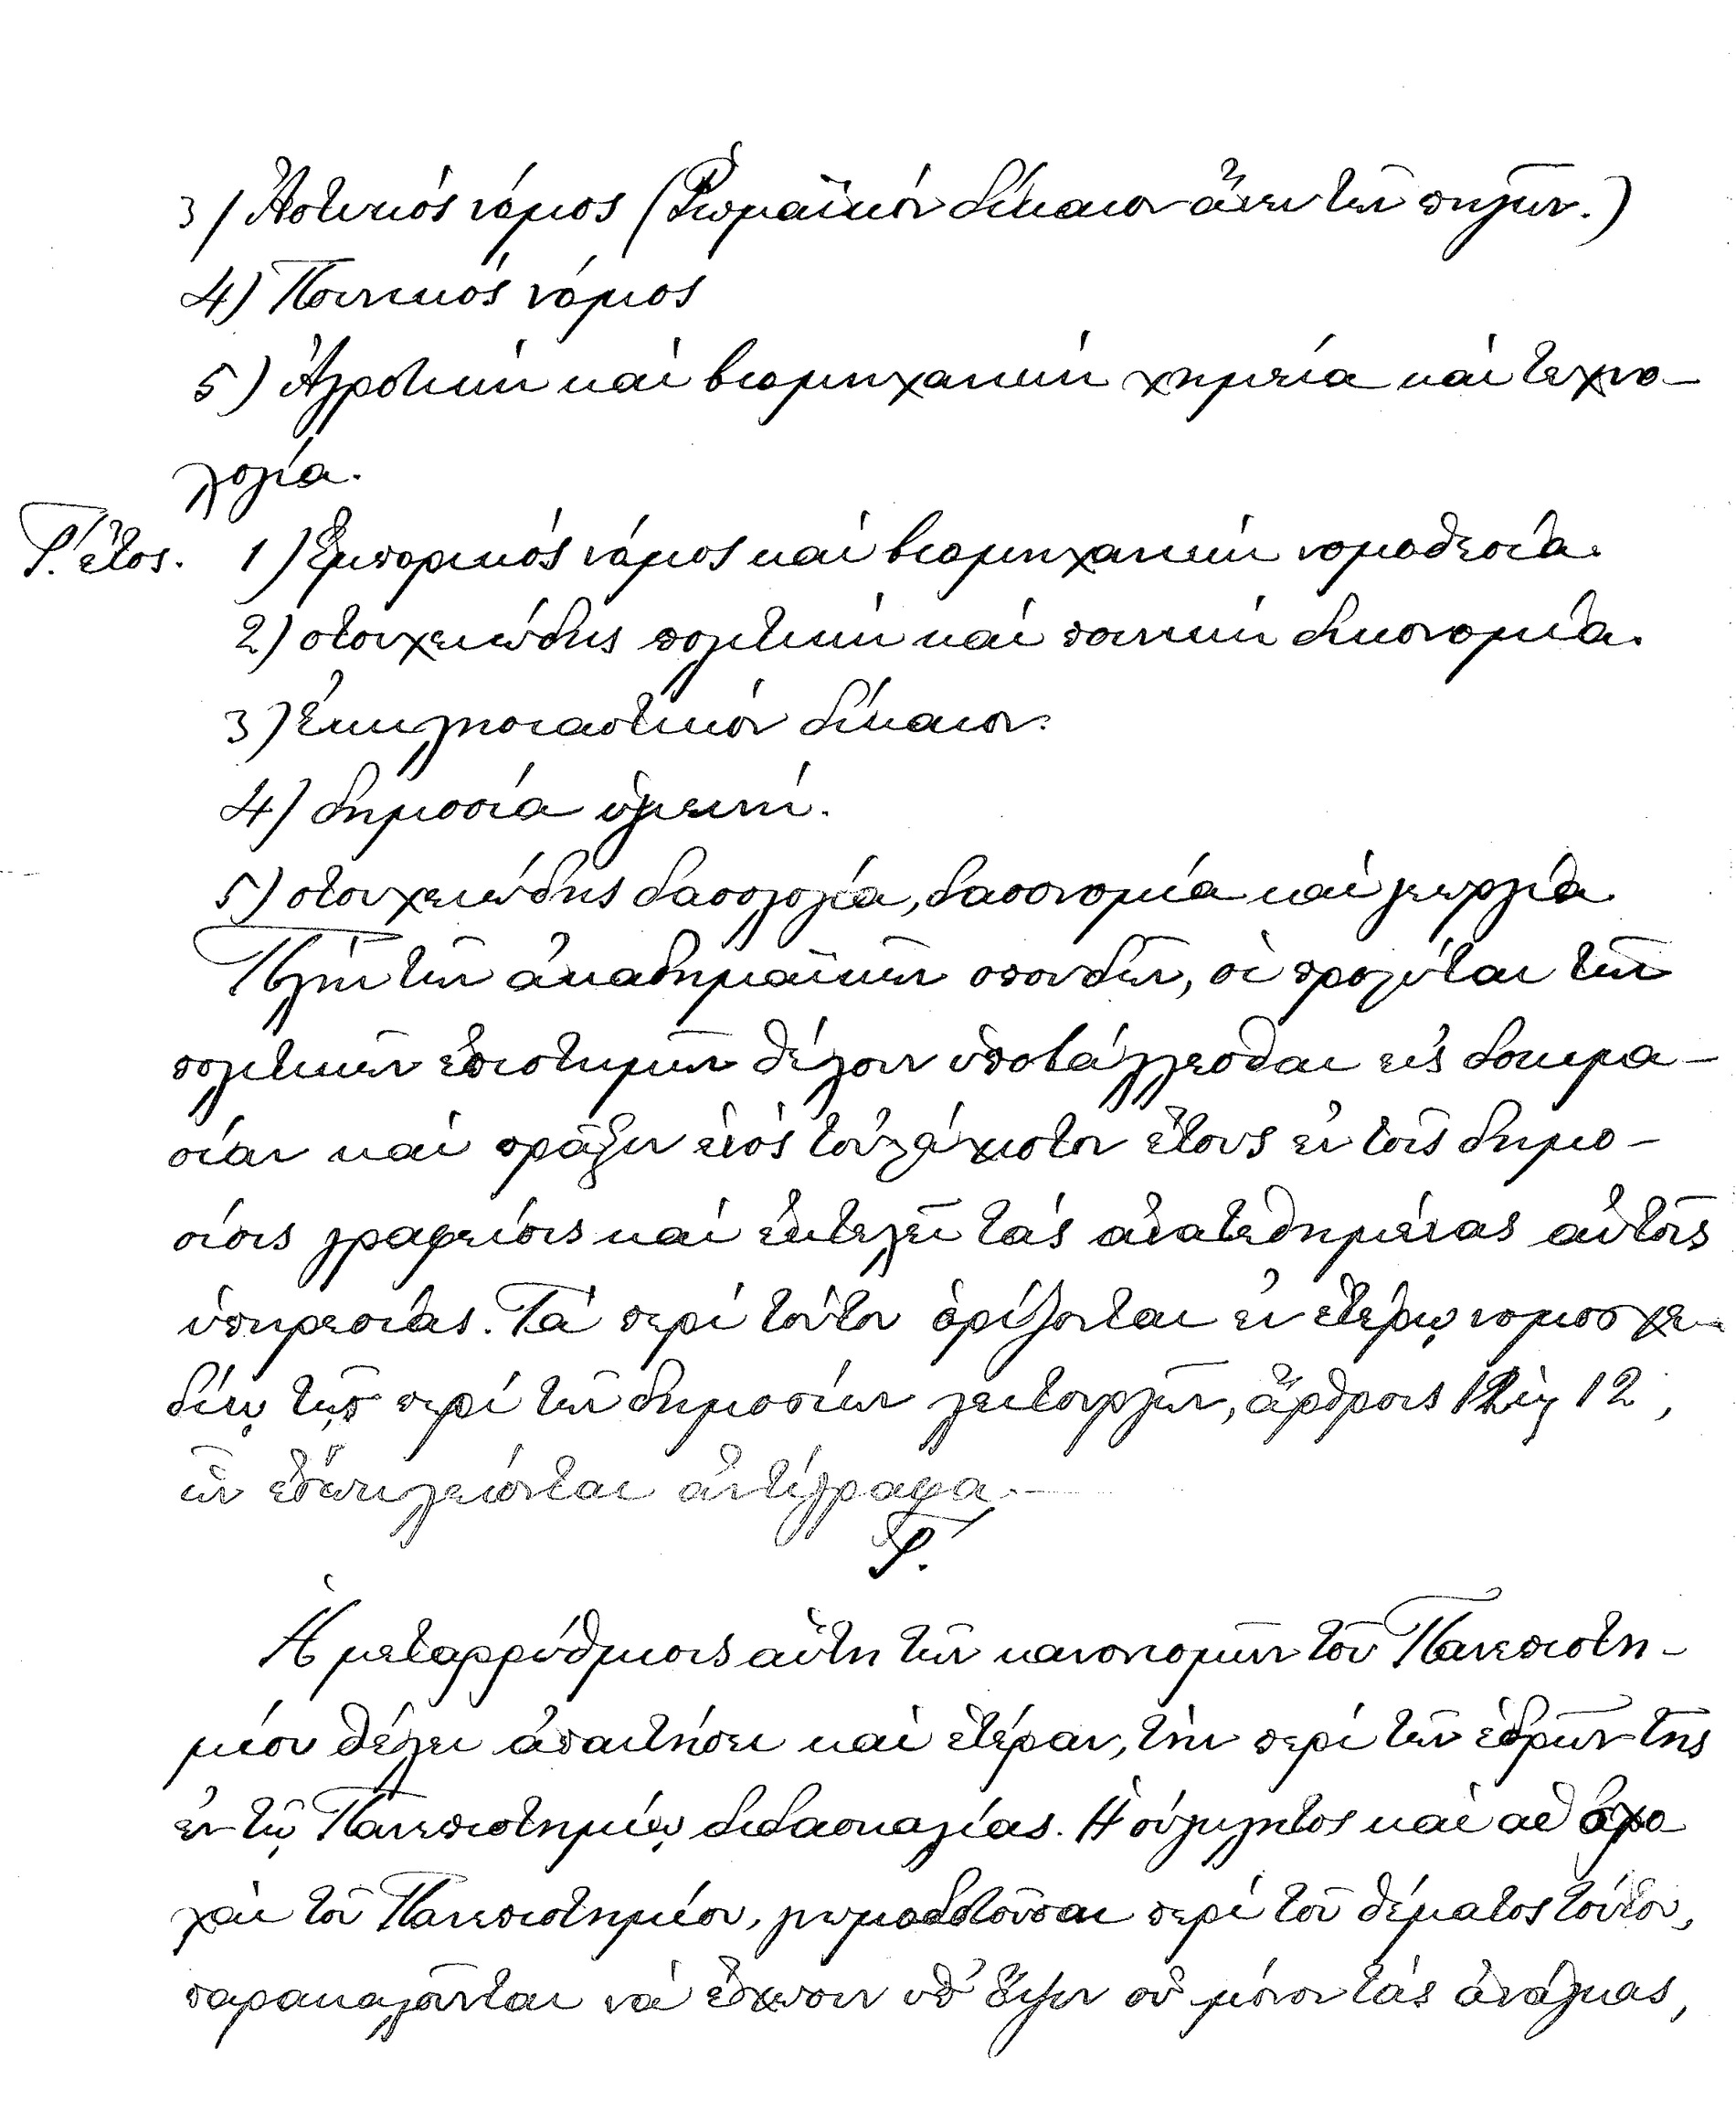 3) Ἀστικός νόμος (Ῥωμαϊκόν δίκαιον ἄνευ τῶν πηγῶν.)
4) Ποινικός νόμος
5) Ἀγροτική καί βιομηχανική χημεία καί τεχνο-
λογία.
Γ΄. ἔτος. 1) Ἐμπορικός νόμος καί βιομηχανική νομοθεσία.
2) στοιχειώδης πολιτική καί ποινική δικονομία.
3) Ἐκκλησιαστικόν δίκαιον.
4) δημοσία ὑγιεινή.
5) στοιχειώδης δασολογία, δασονομία καί γεωργία.
Πλήν τῶν ἀκαδημαϊκῶν σπουδῶν, οἱ προλύται τῶν
πολιτικῶν ἐπιστημῶν θέλουν ὑποβάλλεσθαι εἰς δοκιμα-
σίαν καί πρᾶξιν ἑνός τοὐλάχιστον ἔτους ἐν τοῖς δημο-
σίοις γραφείοις καί ἐκτελεῖ τάς ἀνατεθημένας αὐτοῖς
ὑπηρεσίας. Τά περί τούτου ὁρίζονται ἐν ἑτέρῳ νομοσχε-
δίῳ τῷ περί τῶν δημοσίων λειτουργῶν, ἄρθροις 12,
ὧν ἐσωκλείονται ἀντίγραφα.
Γ΄.
Ἡ μεταρρύθμισις αὕτη τῶν κανονισμῶν τοῦ Πανεπιστη-
μίου θέλει ἀπαιτήσει καί ἑτέραν, τήν περί τῶν ἑδρῶν τῆς
ἐν τῷ Πανεπιστημίῳ διδασκαλίας. Ἡ σύγκλητος καί αἱ σχο
λαί τοῦ Πανεπιστημίου, γνωμοδοτοῦσαι περί τοῦ θέματος τούτου,
παρακαλοῦνται νά ἔχωσιν ὑπ' ὄψιν οὐ μόνον τάς ἀνάγκας,